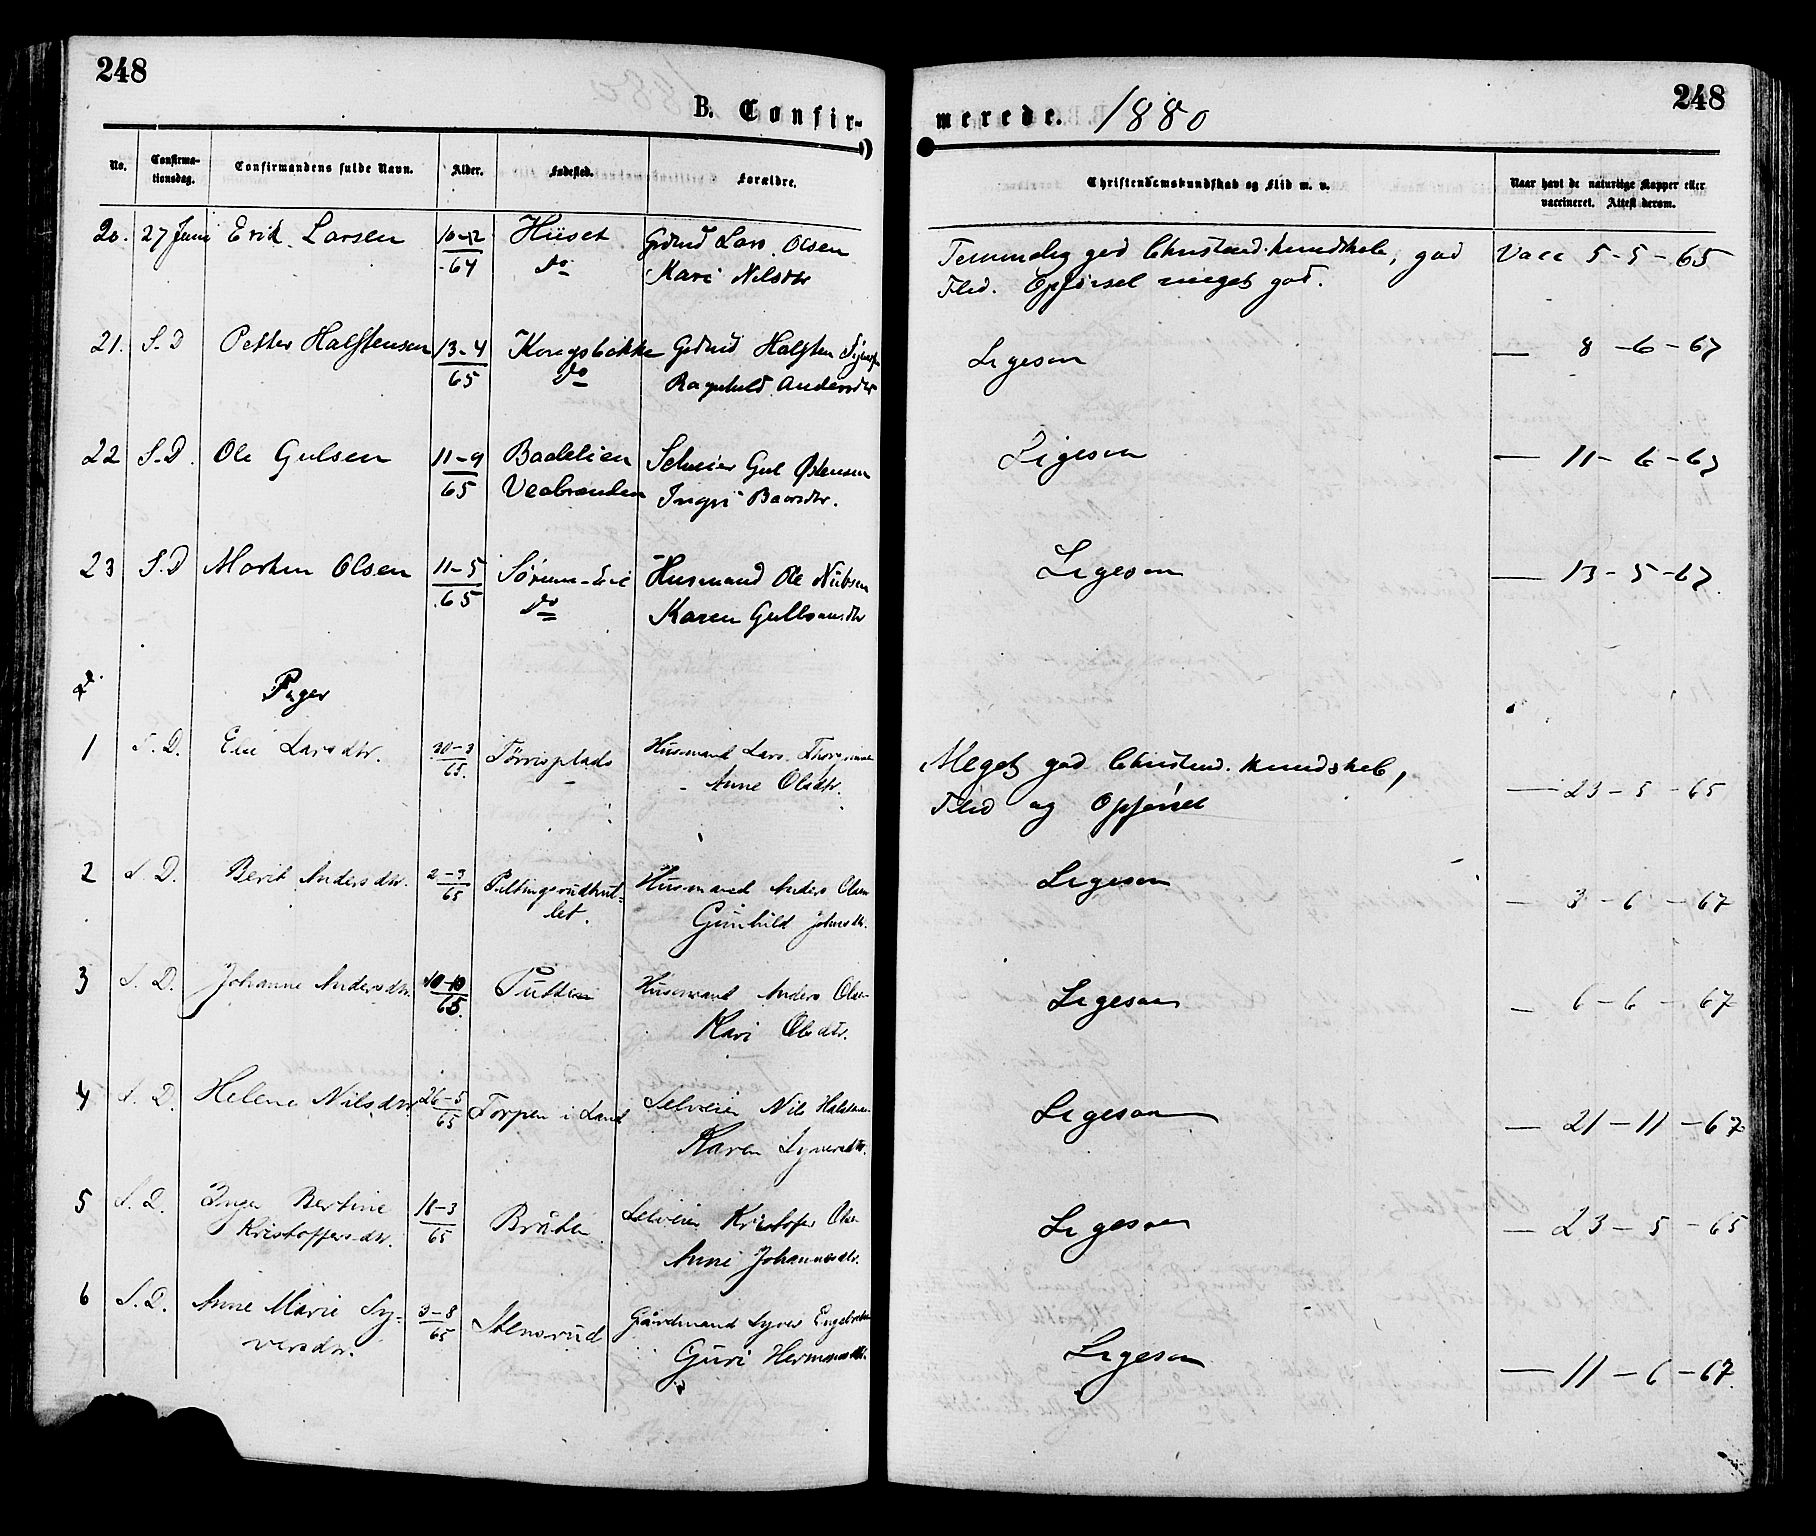 248
248
B. Confirmerede. 1880
No.
Confirmationsdag.
Confirmandens fulde Navn.
Alder.
Fødested.
Forældre.
Christendomskundskab og Flid m. v.
Naar havt de naturlige Kopper eller vaccineret. Attest derom.
20. 27 Juni Erik Larsen 10-12/64 Huset Grdmd Lars Olsen Temmelig god Christend. kundskab, god Vacc 5-5-65
do Kari Nilsdtr Flid. Opførsel meget god.
21. S.D Petter Halstensen 13-4/65 Kongsbakke Grdmd Halsten Ligesom — 8-6-67
do Ragnhild Andersdtr
22 S.D. Ole Gulsen 11-9/65 Badelien Selveier Gul Østensen Ligesom — 11-6-67
Veabraenden Ingri Baarsdtr.
23 S.D Morten Olsen 11-5/65 Sørum-Eie Husmand Ole Nubsen Ligesom — 13-5-67
do Karen Gullsmdtr
Piger
1 S.D. Eli Larsdtr. 30-3/65. Tørrisplads Husmand Lars Meget god Christend. kundskab, — 23-5-65
Anne Olsdtr. Flid og Opførsel
2 S.D. Berit Andersdtr. 2-3/65 Pultingsrudhut= Husmand Anders Olsen Ligesom — 3-6-67
let. Gunhild Johnsdtr.
3 S.D. Johanne Andersdtr. 10-10/65. Putten Husmand Anders Olsen Ligesom — 6-6-67
Kari Olsdtr.
4 S.D. Helene Nilsdtr 26-5/65 Torpen i Land Selveier Nils Halstensen Ligesom — 21-11-67
Karen Syversdtr.
5 S.D. Inger Bertine 18-3/65 Bråten Selveier Kristofer Olsen Ligesom — 23-5-65
Kristoffersdtr. Anne Johannesdtr.
6 S.D. Anne Marie Sy- 3-8/65 Stensrud Gårdmand Syver Engebretsen Ligesom — 11-6-67.
versdtr. Guri Hermansdtr.